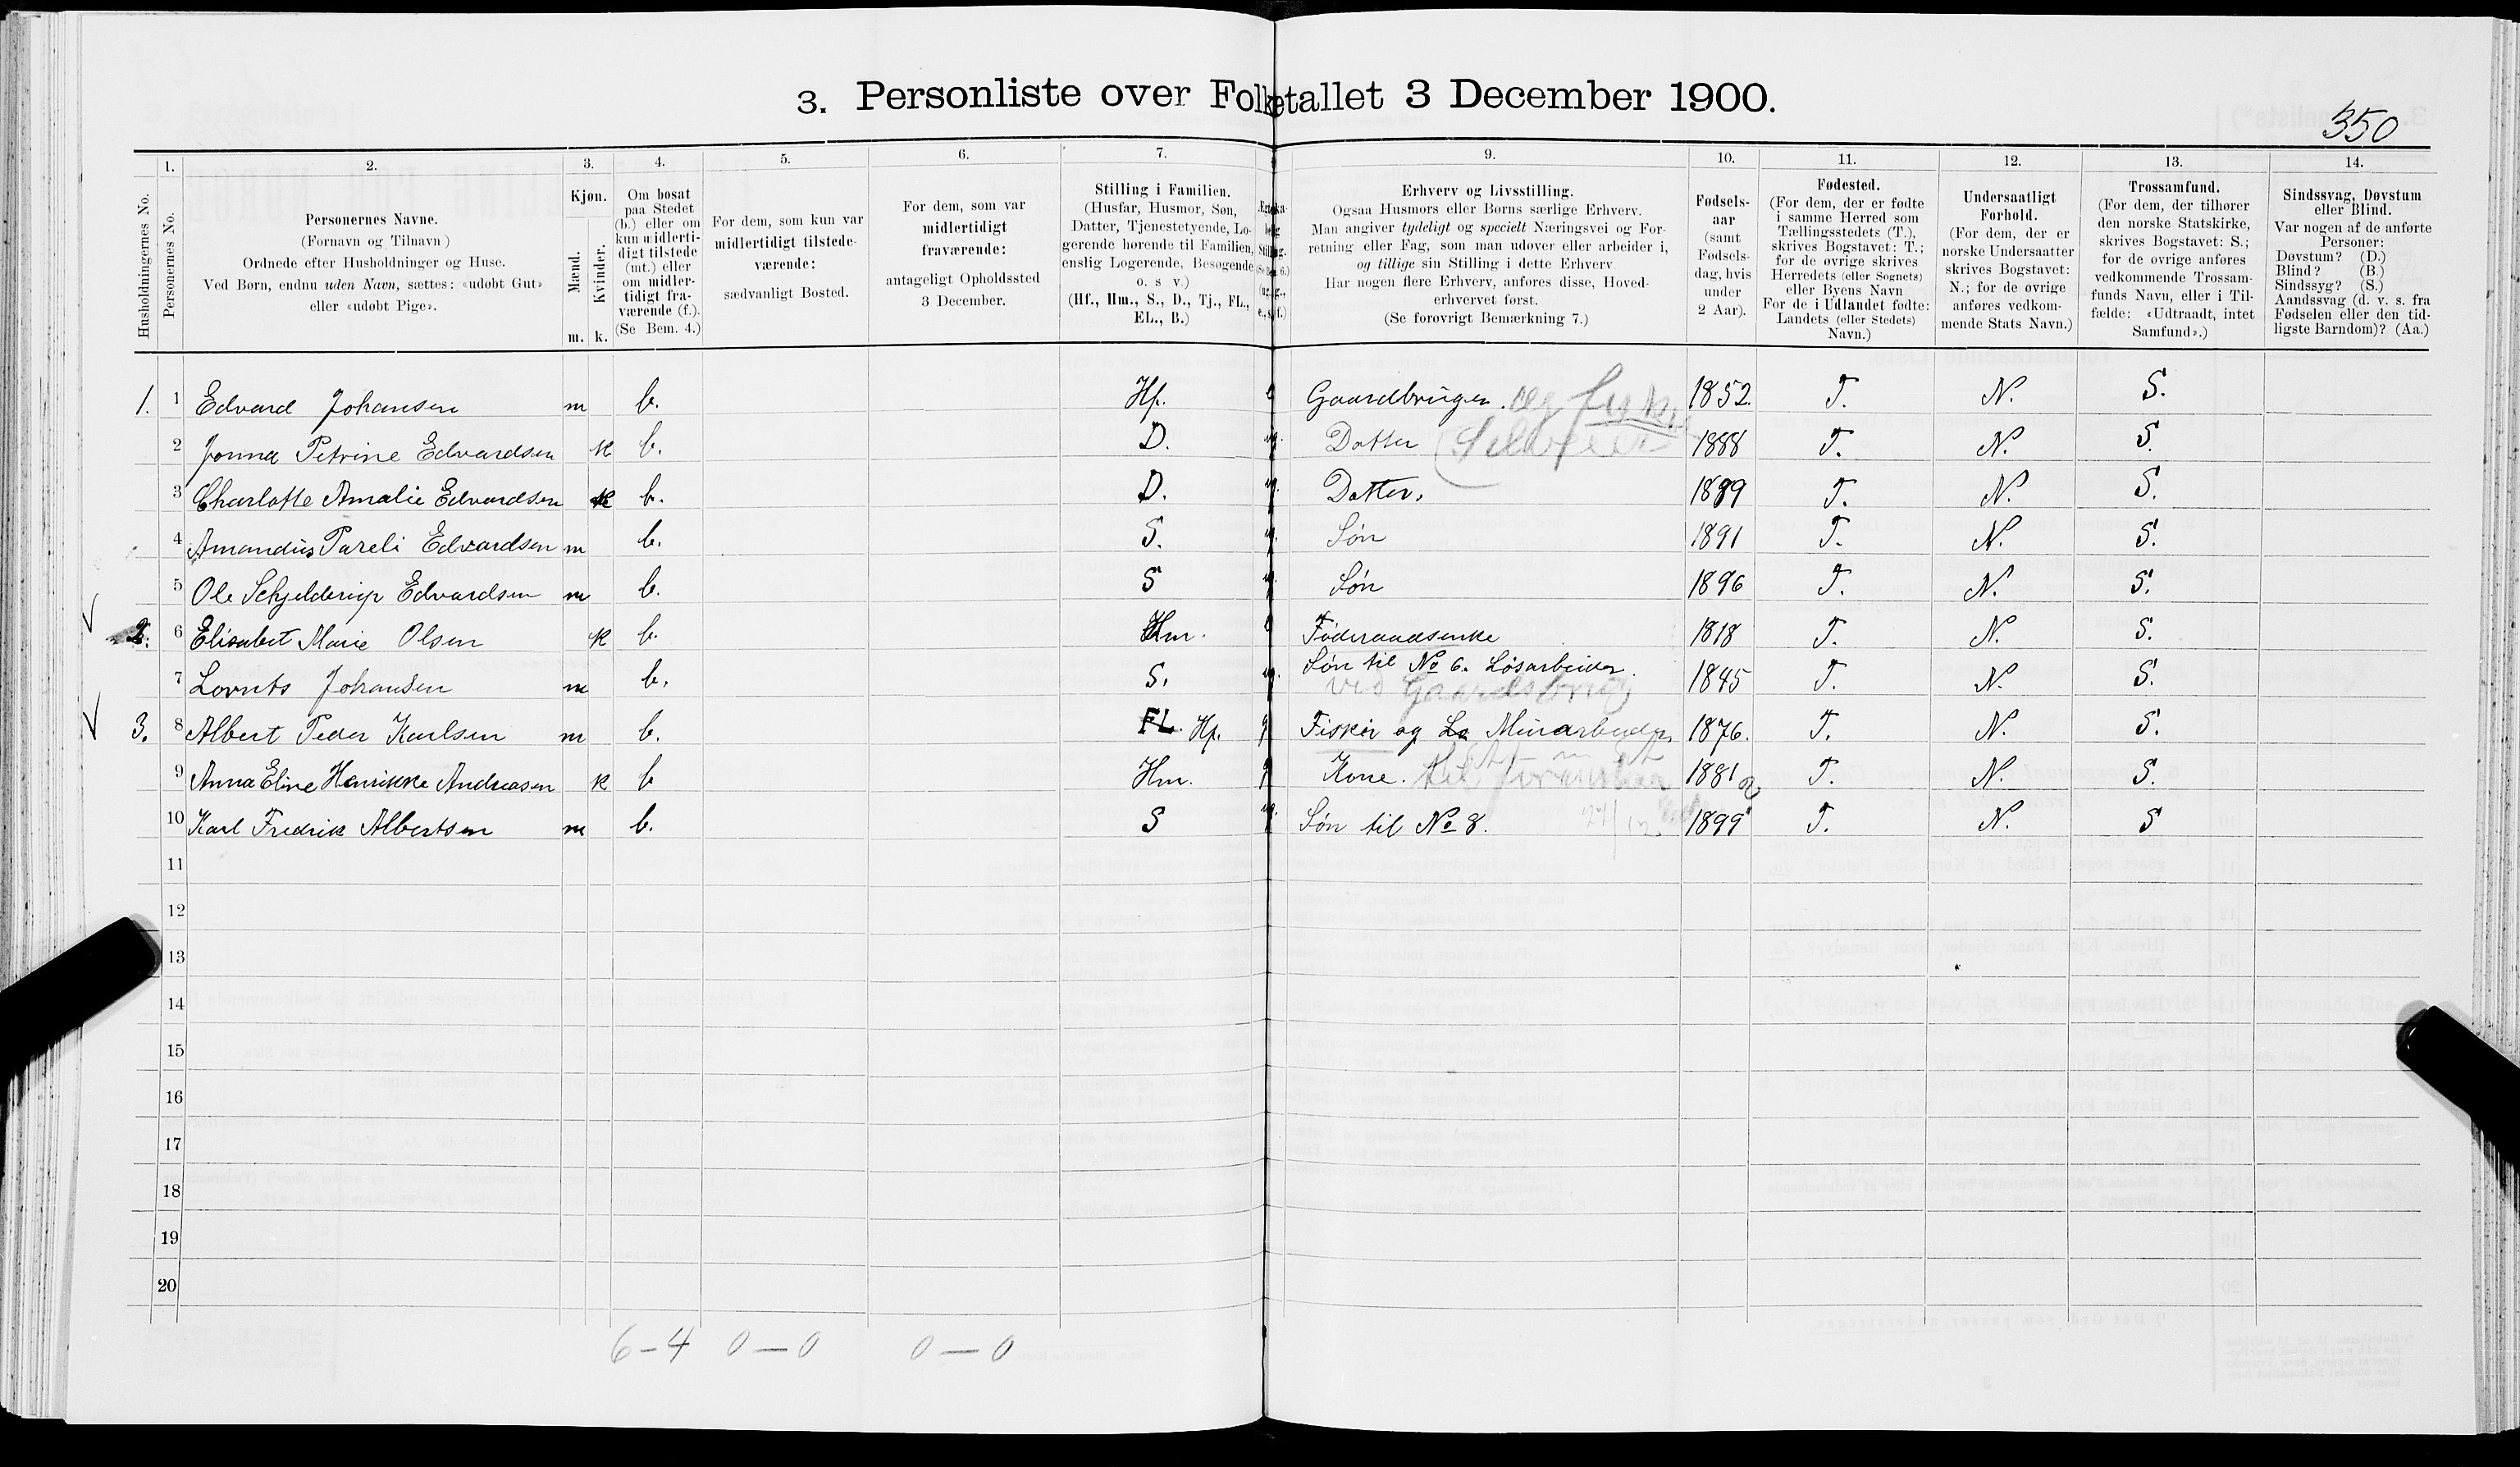 3. Personliste over Folketallet 3 December 1900.
350
1. 2. 3. 4. 5. 6. 7. 9. 10. 11. 12. 13. 14.
Husholdningernes No.
Personernes No.
Personernes Navne.
(Fornavn og Tilnavn)
Ordnede efter Husholdninger og Huse.
Ved Børn, endnu uden Navn, sættes: «udøbt Gut»
eller «udøbt Pige».
Kjøn.
Mænd.
Kvinder.
m. k.
Om bosat
paa Stedet
(b.) eller om
kun midlerti-
digt tilstede
(mt.) eller
om midler-
tidigt fra-
værende (f.).
(Se Bem. 4.)
For dem, som kun var
midlertidigt tilstede-
værende:
sædvanligt Bosted.
For dem, som var
midlertidigt
fraværende:
antageligt Opholdssted
3 December.
Stilling i Familien.
(Husfar, Husmor, Søn,
Datter, Tjenestetyende, Lo-
gerende hørende til Familien,
enslig Logerende, Besøgende
o. s v.)
(Hf., Hm., S., D., Tj., FL.,
EL., B.)
Erhverv og Livsstilling.
Ogsaa Husmors eller Børns særlige Erhverv.
Man angiver tydeligt og specielt Næringsvei og For-
retning eller Fag, som man udøver eller arbeider i,
og tillige sin Stilling i dette Erhverv
Har nogen flere Erhverv, anføres disse, Hoved-
erhvervet først.
(Se forøvrigt Bemærkning 7.)
Fødsels-
aar
(samt
Fødsels-
dag, hvis
under
2 Aar).
Fødested.
(For dem, der er fødte
i samme Herred som
Tællingsstedets (T.),
skrives Bogstavet: T.;
for de øvrige skrives
Herredets (eller Sognets)
eller Byens Navn
For de i Udlandet fødte:
Landets (eller Stedets)
Navn.)
Undersaatligt
Forhold.
(For dem, der er
norske Undersaatter
skrives Bogstavet:
N.; for de øvrige
anføres vedkom-
mende Stats Navn.)
Trossamfund.
(For dem, der tilhører
den norske Statskirke,
skrives Bogstavet: S.;
for de øvrige anføres
vedkommende Trossam-
funds Navn, eller i Til-
fælde: «Udtraadt, intet
Samfund».)
Sindssvag, Døvstum
eller Blind.
Var nogen af de anførte
Personer:
Døvstum? (D.)
Blind? (B.)
Sindssyg? (S.)
Aandssvag (d. v. s. fra
Fødselen eller den tid-
ligste Barndom)? (Aa.)
1. 1 Edvard Johansen m b. Hf. Gaardbruger. og fisker 1852. T. N. S.
2 Jonna Petrine Edvardsen k b. D. Datter (Selveier 1888 T. N. S.
3 Charlotte Amalie Edvardsen k b. D. Datter. 1889 T. N. S.
4 Amandus Pareli Edvardsen m b. S. Søn 1891 T. N. S.
5 Ole Schjelderup Edvardsen m b. S Søn 1896 T. N. S.
2. 6 Elisabet Marie Olsen k b. Hm. Føderaadsenke 1818 T. N. S.
7 Lornts Johansen m b. S. Søn til No 6. Løsarbeider. 1845 T. N. S.
ved Gaardsbrug
3. 8 Albert Peder Karlsen m b. FL. Hf. Fisker og Lo Minarbeider 1876. T. N. S.
9 Anna Eline Henrikke Andreasen k b Hm. Kone. 1881 T. N. S.
10 Karl Fredrik Albertsen m b. S Søn til No 8. 24/12 1899 T. N. S
11
12
13
14
15
16
17
18
19
20
6-4 0-0 0-0